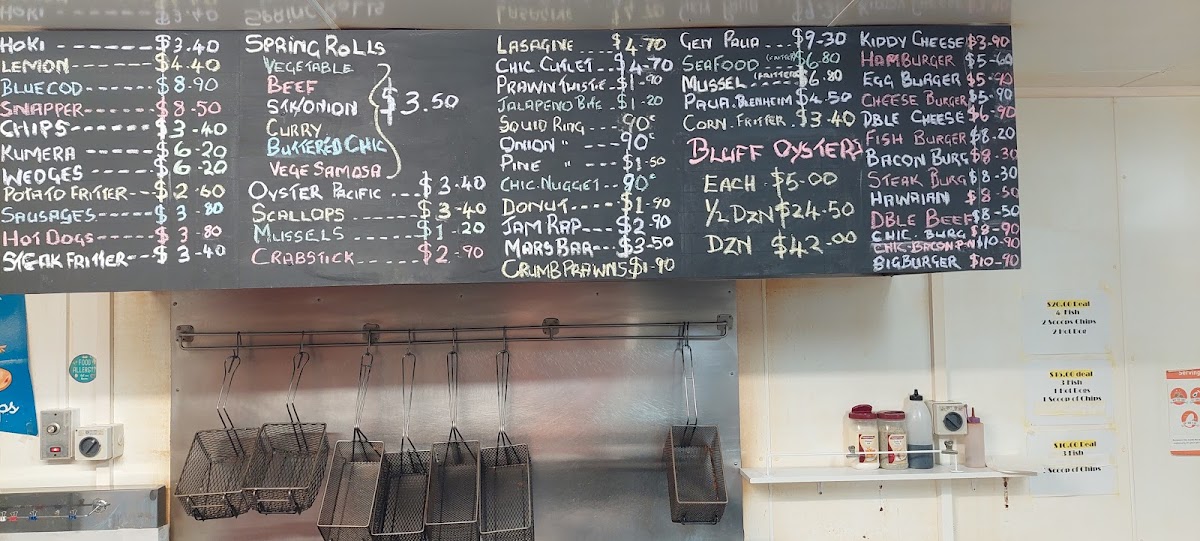 HOKI ------ $3.40
LEMON ----- $4.40
BLUECOD ----- $8.90
SNAPPER ------ $8.50
CHIPS ------ $3.40
KUMERA ----- $6-20
WEDGES ----- $6-20
POTATO FRITTER -- $2.60
SAUSAGES ---- $3.80
HOT DOGS ---- $3.80
STEAK FRITTER --- $3.40
SPRING ROLLS
VEGETABLE
BEEF
STK/ONION
CURRY
BUTTERED CHIC
VEGE SAMOSA
$3.50
OYSTER PACIFIC ... $3.40
SCALLOPS ...... $3-40
MUSSELS ..... $1.20
CRABSTICK ...... $2.90
LASAGNE ... $4.70
CHIC CUTLET .. $4.70
PRAWN TWISTIE - $1.90
JALAPENO BITE - $1-20
SQUID RING --- 90c
ONION " ---- 90c
PINE " ---- $1.50
CHIC NUGGET -- 90c
DONUT ----- $1-90
JAM RAP --- $2.90
MARS BAR --- $3.50
CRUMB PRAWNS $1-90
GEN PAUA ... $9-30
SEAFOOD (FRITTER) $6.80
MUSSEL (FRITTER) $6.80
PAUA BLENHEIM $4.50
CORN FRITTER . $3.40
BLUFF OYSTERS
EACH - $5-00
1/2 DZN $24-50
DZN $42-00
KIDDY CHEESE $3-90
HAMBURGER $5-60
EGG BURGER $5-90
CHEESE BURGER $5-90
DBLE CHEESE $6-90
FISH BURGER $8.20
BACON BURG $8-30
STEAK BURG $8-30
HAWAIIAN $8-50
DBLE BEEF $8-50
CHIC. BURG $8-90
CHIC-BACON-PN $10-90
BIG BURGER $10-90
$20.00 Deal
4 Fish
2 Scoops Chips
2 Hot Dog
$15.00 deal
3 Fish
1 Hot Dogs
1 Scoop of Chips
$10.00 Deal
3 Fish
Scoop of Chips
FOOD
ALLERGY
Serving